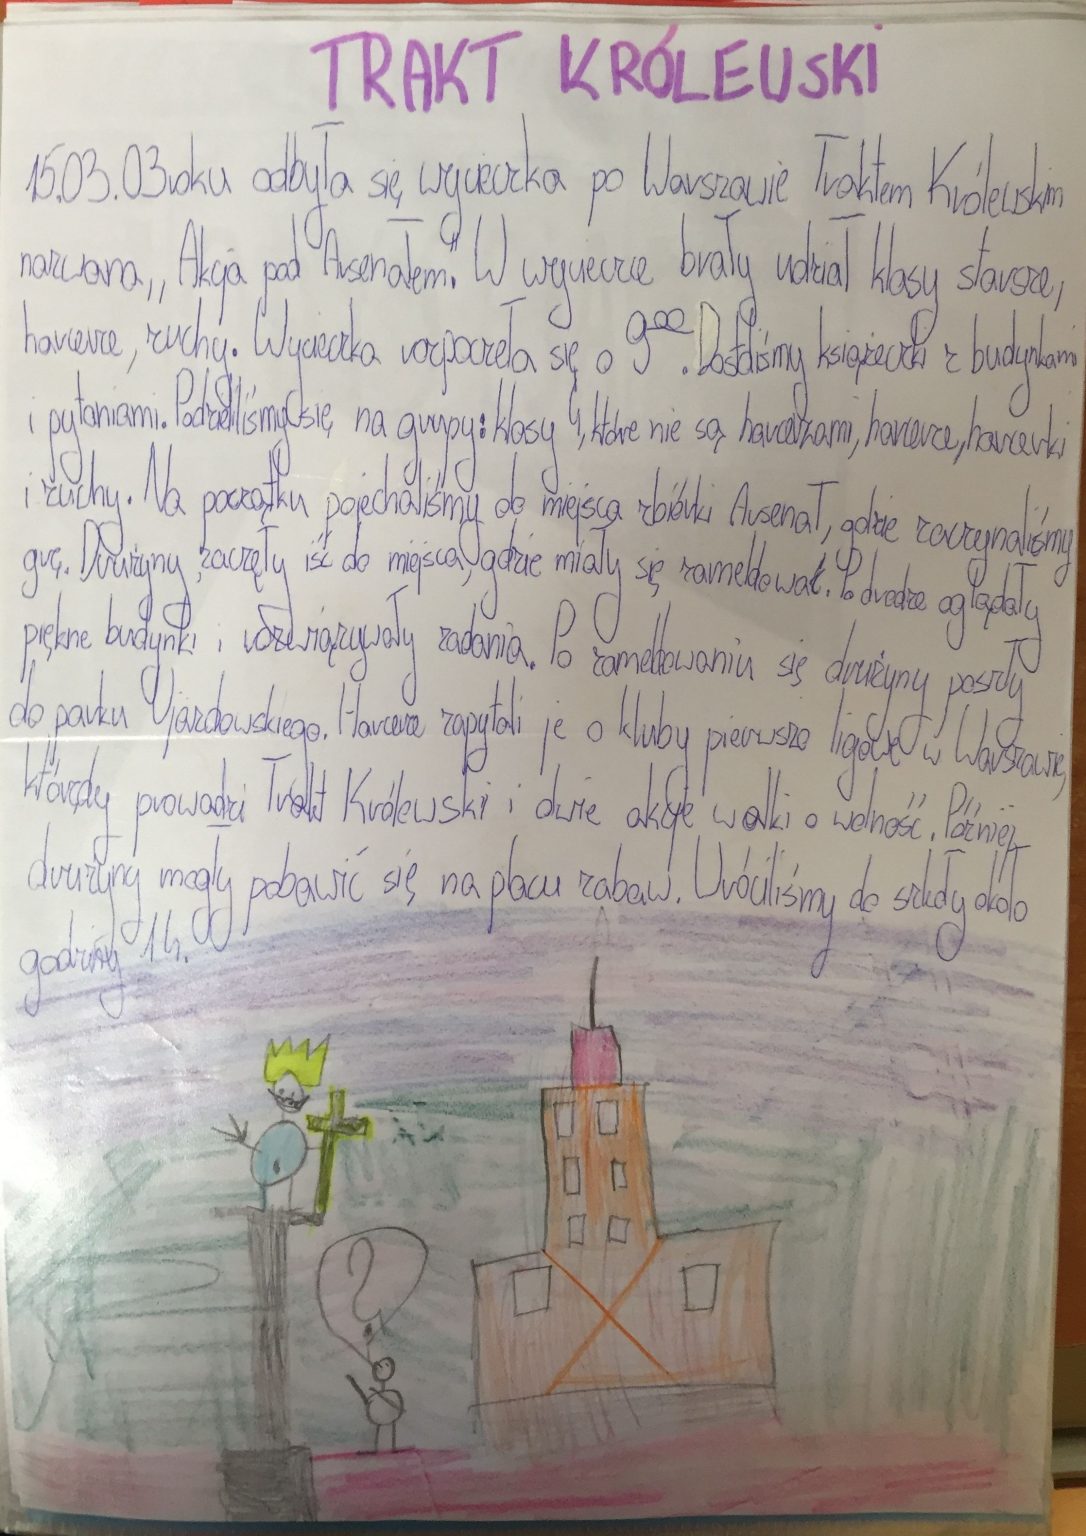 TRAKT KRÓLEWSKI
15.03.03roku odbyła się wycieczka po Warszawie Traktem Królewskim
nazwana „Akcja pod Arsenałem." W wycieczce brały udział klasy starsze,
harcerze, zuchy. Wycieczka rozpoczęła się o 9⁰⁰. Dostaliśmy książeczki z budynkami
i pytaniami. Podzieliliśmy się na grupy: klasy 4, które nie są harcerzami, harcerze, harcerki
i zuchy. Na początku pojechaliśmy do miejsca zbiórki Arsenał, gdzie zaczynaliśmy
grę. Drużyny zaczęły iść do miejsca, gdzie miały się zameldować. Po drodze oglądały
piękne budynki i rozwiązywały zadania. Po zameldowaniu się drużyny poszły
do parku Ujazdowskiego. Harcerze zapytali je o kluby pierwszo ligowe w Warszawie,
którędy prowadzi Trakt Królewski i dwie akcje walki o wolność. Później
drużyny mogły pobawić się na placu zabaw. Wróciliśmy do szkoły około
godziny 14.
?